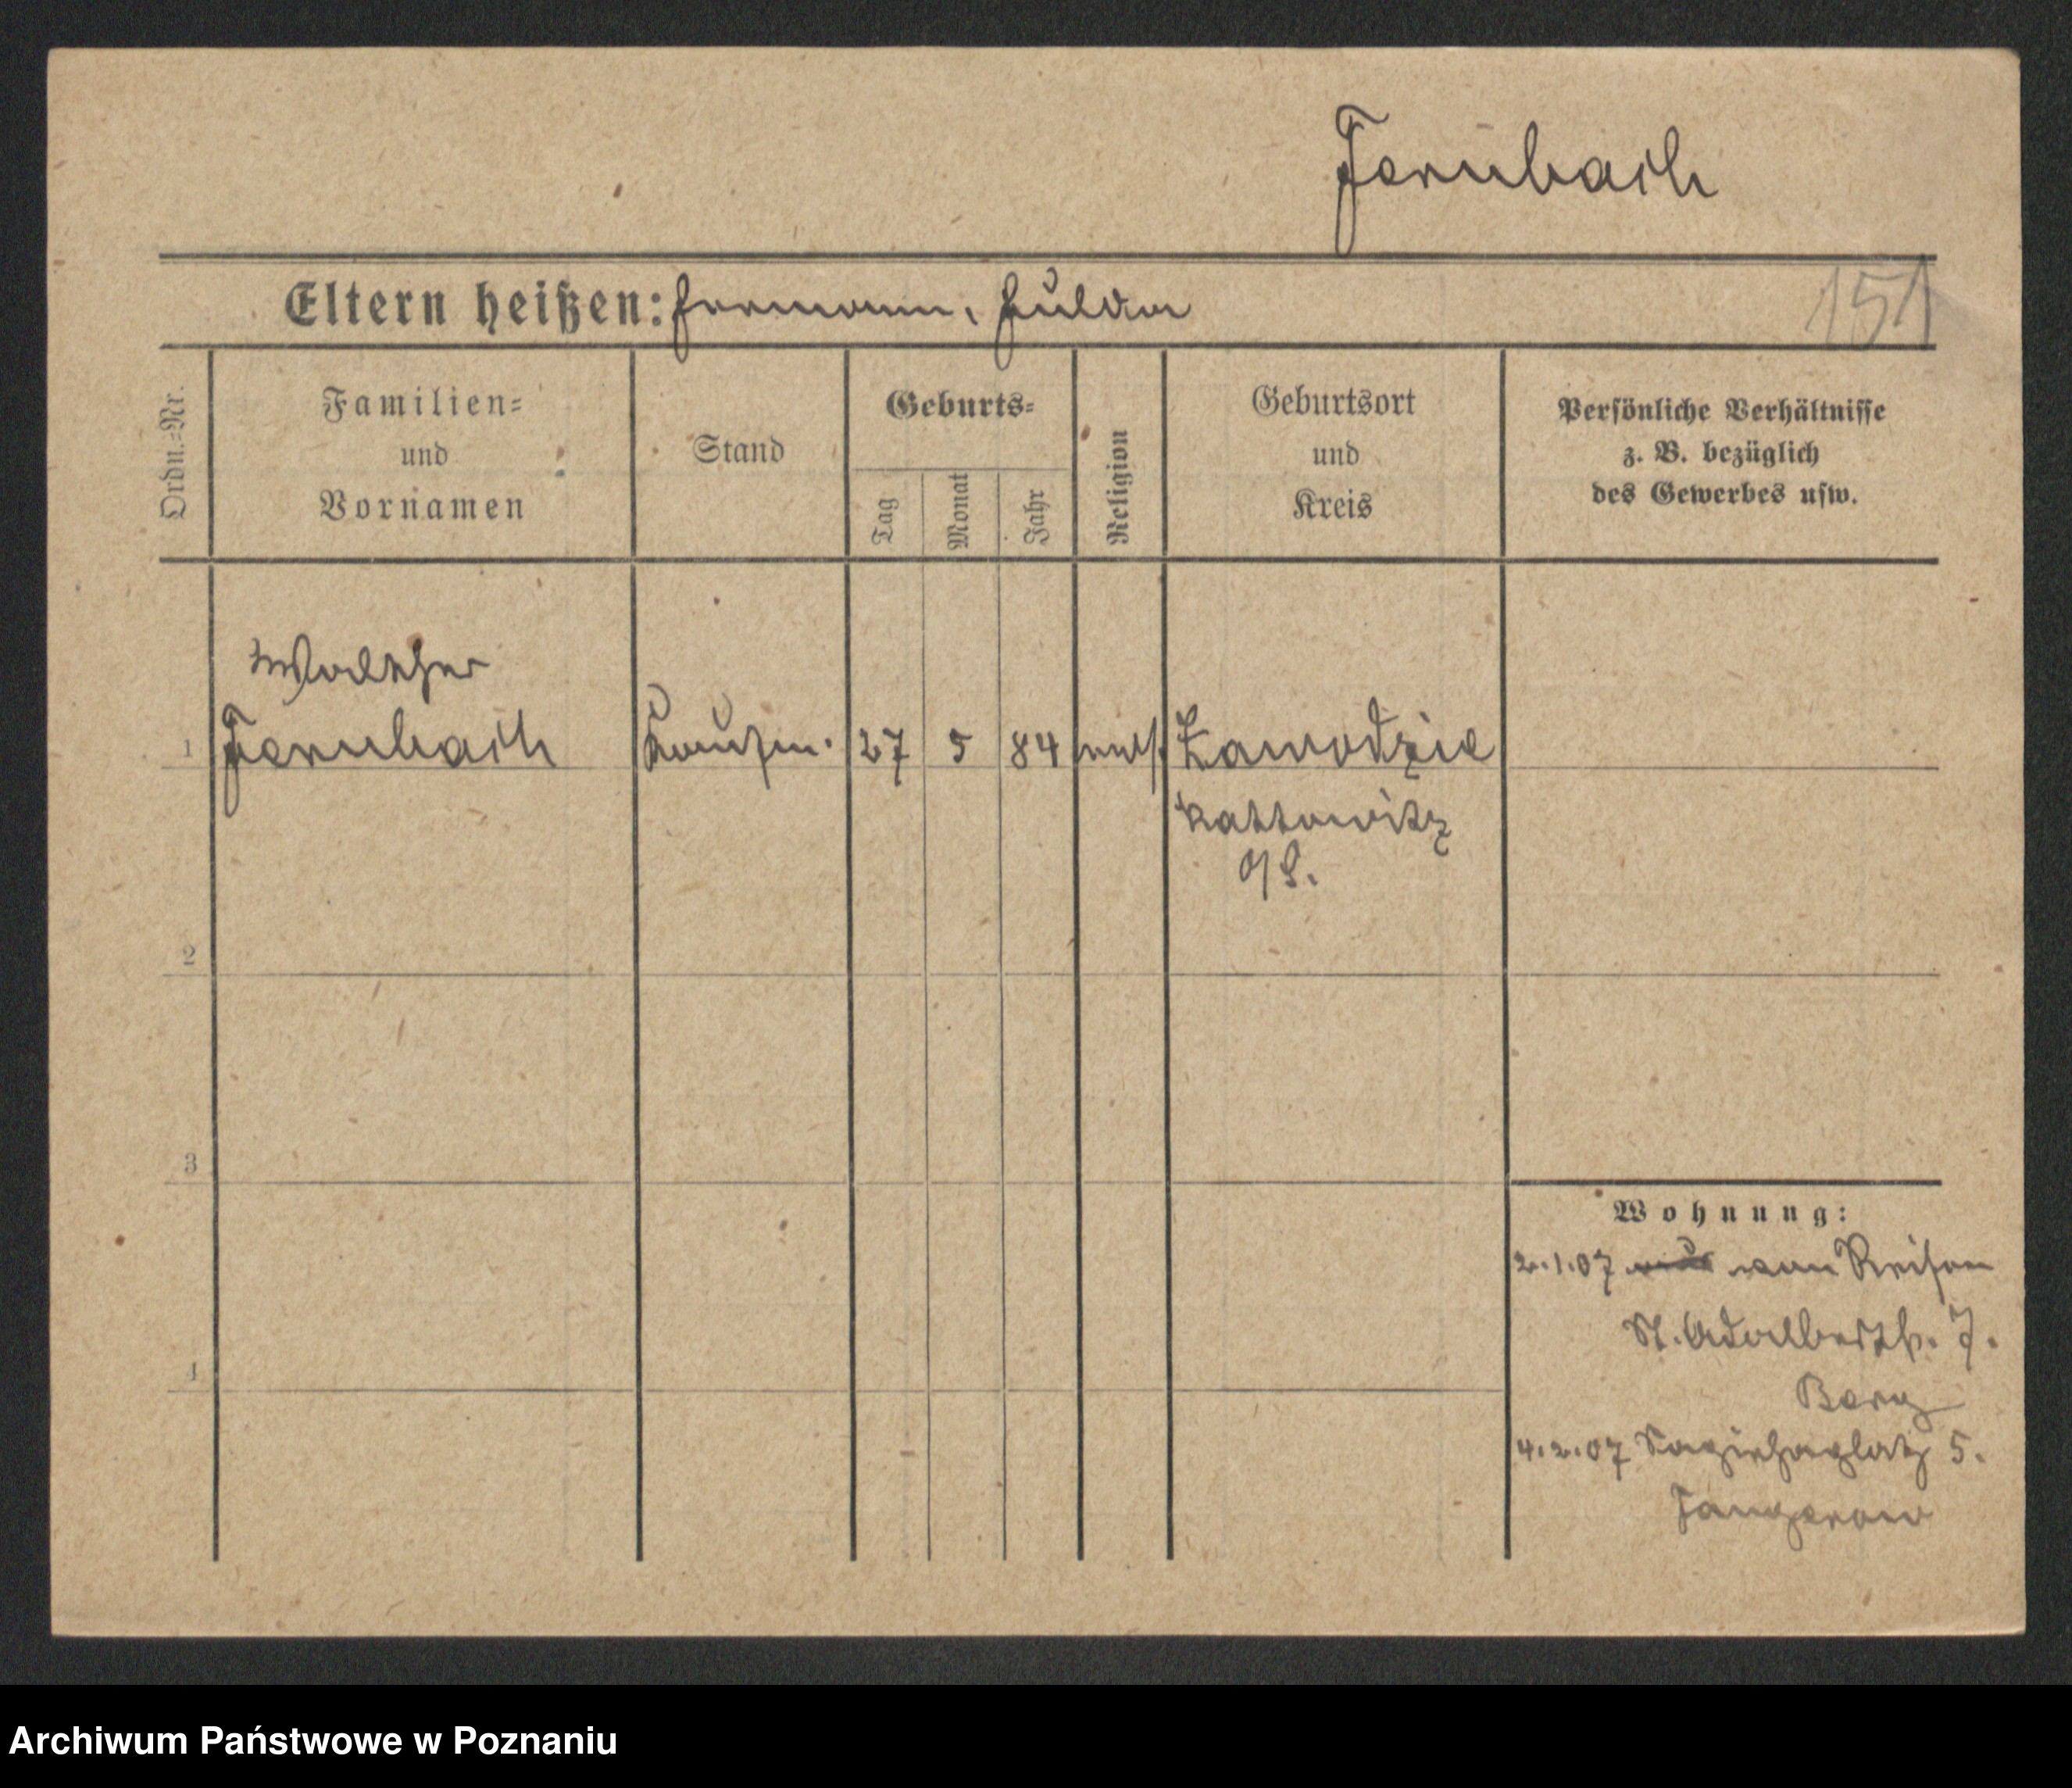 Fernbach
Eltern heißen: Hermann, Hulda
151
Ordn.=Nr.
Familien=
und
Vornamen
Stand
Geburts=
Tag
Monat
Jahr
Religion
Geburtsort
und
Kreis
Persönliche Verhältnisse
z. B. bezüglich
des Gewerbes usw.
Walther
1 Fernbach Kaufm. 27 5 84 mos. Zawodzie
Kattowitz
O/S.
2
3
4
Wohnung:
2.1.07 von Reisen
St. Adalbertstr. 7.
Berg
4.2.07 Sapiehaplatz 5.
Archiwum Państwowe w Poznaniu